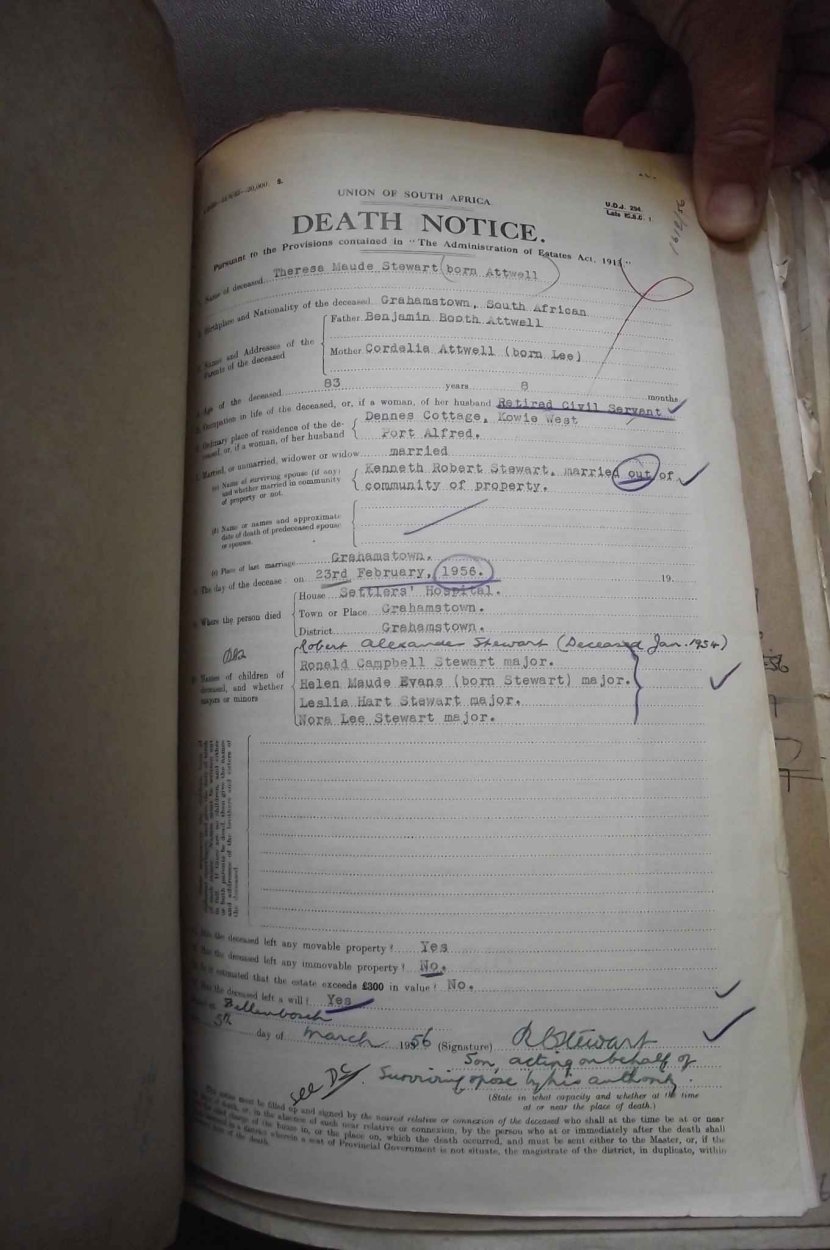 20,000. S.
UNION OF SOUTH AFRICA
U.D.J. 294
DEATH NOTICE.
Pursuant to the Provisions contained in "The Administration of Estates Act, 1913"
Name of deceased Theresa Maude Stewart (born Attwell)
Birthplace and Nationality of the deceased Grahamstown, South African
Names and Addresses of the parents of the deceased
Father Benjamin Booth Attwell
Mother Cordelia Attwell (born Lee)
Age of the deceased 83 years 8 months
Occupation in life of the deceased, or, if a woman, of her husband Retired Civil Servant
Ordinary place of residence of the deceased, or, if a woman, of her husband
Dennes Cottage, Kowie West
Port Alfred.
Married, or unmarried, widower or widow married
(a) Name of surviving spouse (if any) and whether married in community of property or not.
Kenneth Robert Stewart, married out of
community of property.
(b) Name or names and approximate date of death of predeceased spouse or spouses.
(c) Place of last marriage Grahamstown.
The day of the decease : on 23rd February, 1956. 19
Where the person died
House Settlers' Hospital.
Town or Place Grahamstown.
District Grahamstown.
Robert Alexander Stewart (Deceased Jan. 1954)
Names of children of deceased, and whether majors or minors
Ronald Campbell Stewart major.
Helen Maude Evans (born Stewart) major.
Leslie Hart Stewart major.
Nora Lee Stewart major.
the deceased left any movable property? Yes
the deceased left any immovable property? No.
estimated that the estate exceeds £300 in value? No.
the deceased left a will? Yes
5th day of March 1956 (Signature) R C Stewart
Son, acting on behalf of
see DC surviving spouse by his authority.
(State in what capacity and whether at the time
at or near the place of death.)
notice must be filled up and signed by the nearest relative or connexion of the deceased who shall at the time be at or near
death, or, in the absence of such near relative or connexion, by the person who at or immediately after the death shall
charge of the house in, or the place on, which the death occurred, and must be sent either to the Master, or, if the
in a district wherein a seat of Provincial Government is not situate, the magistrate of the district, in duplicate, within
of the death.